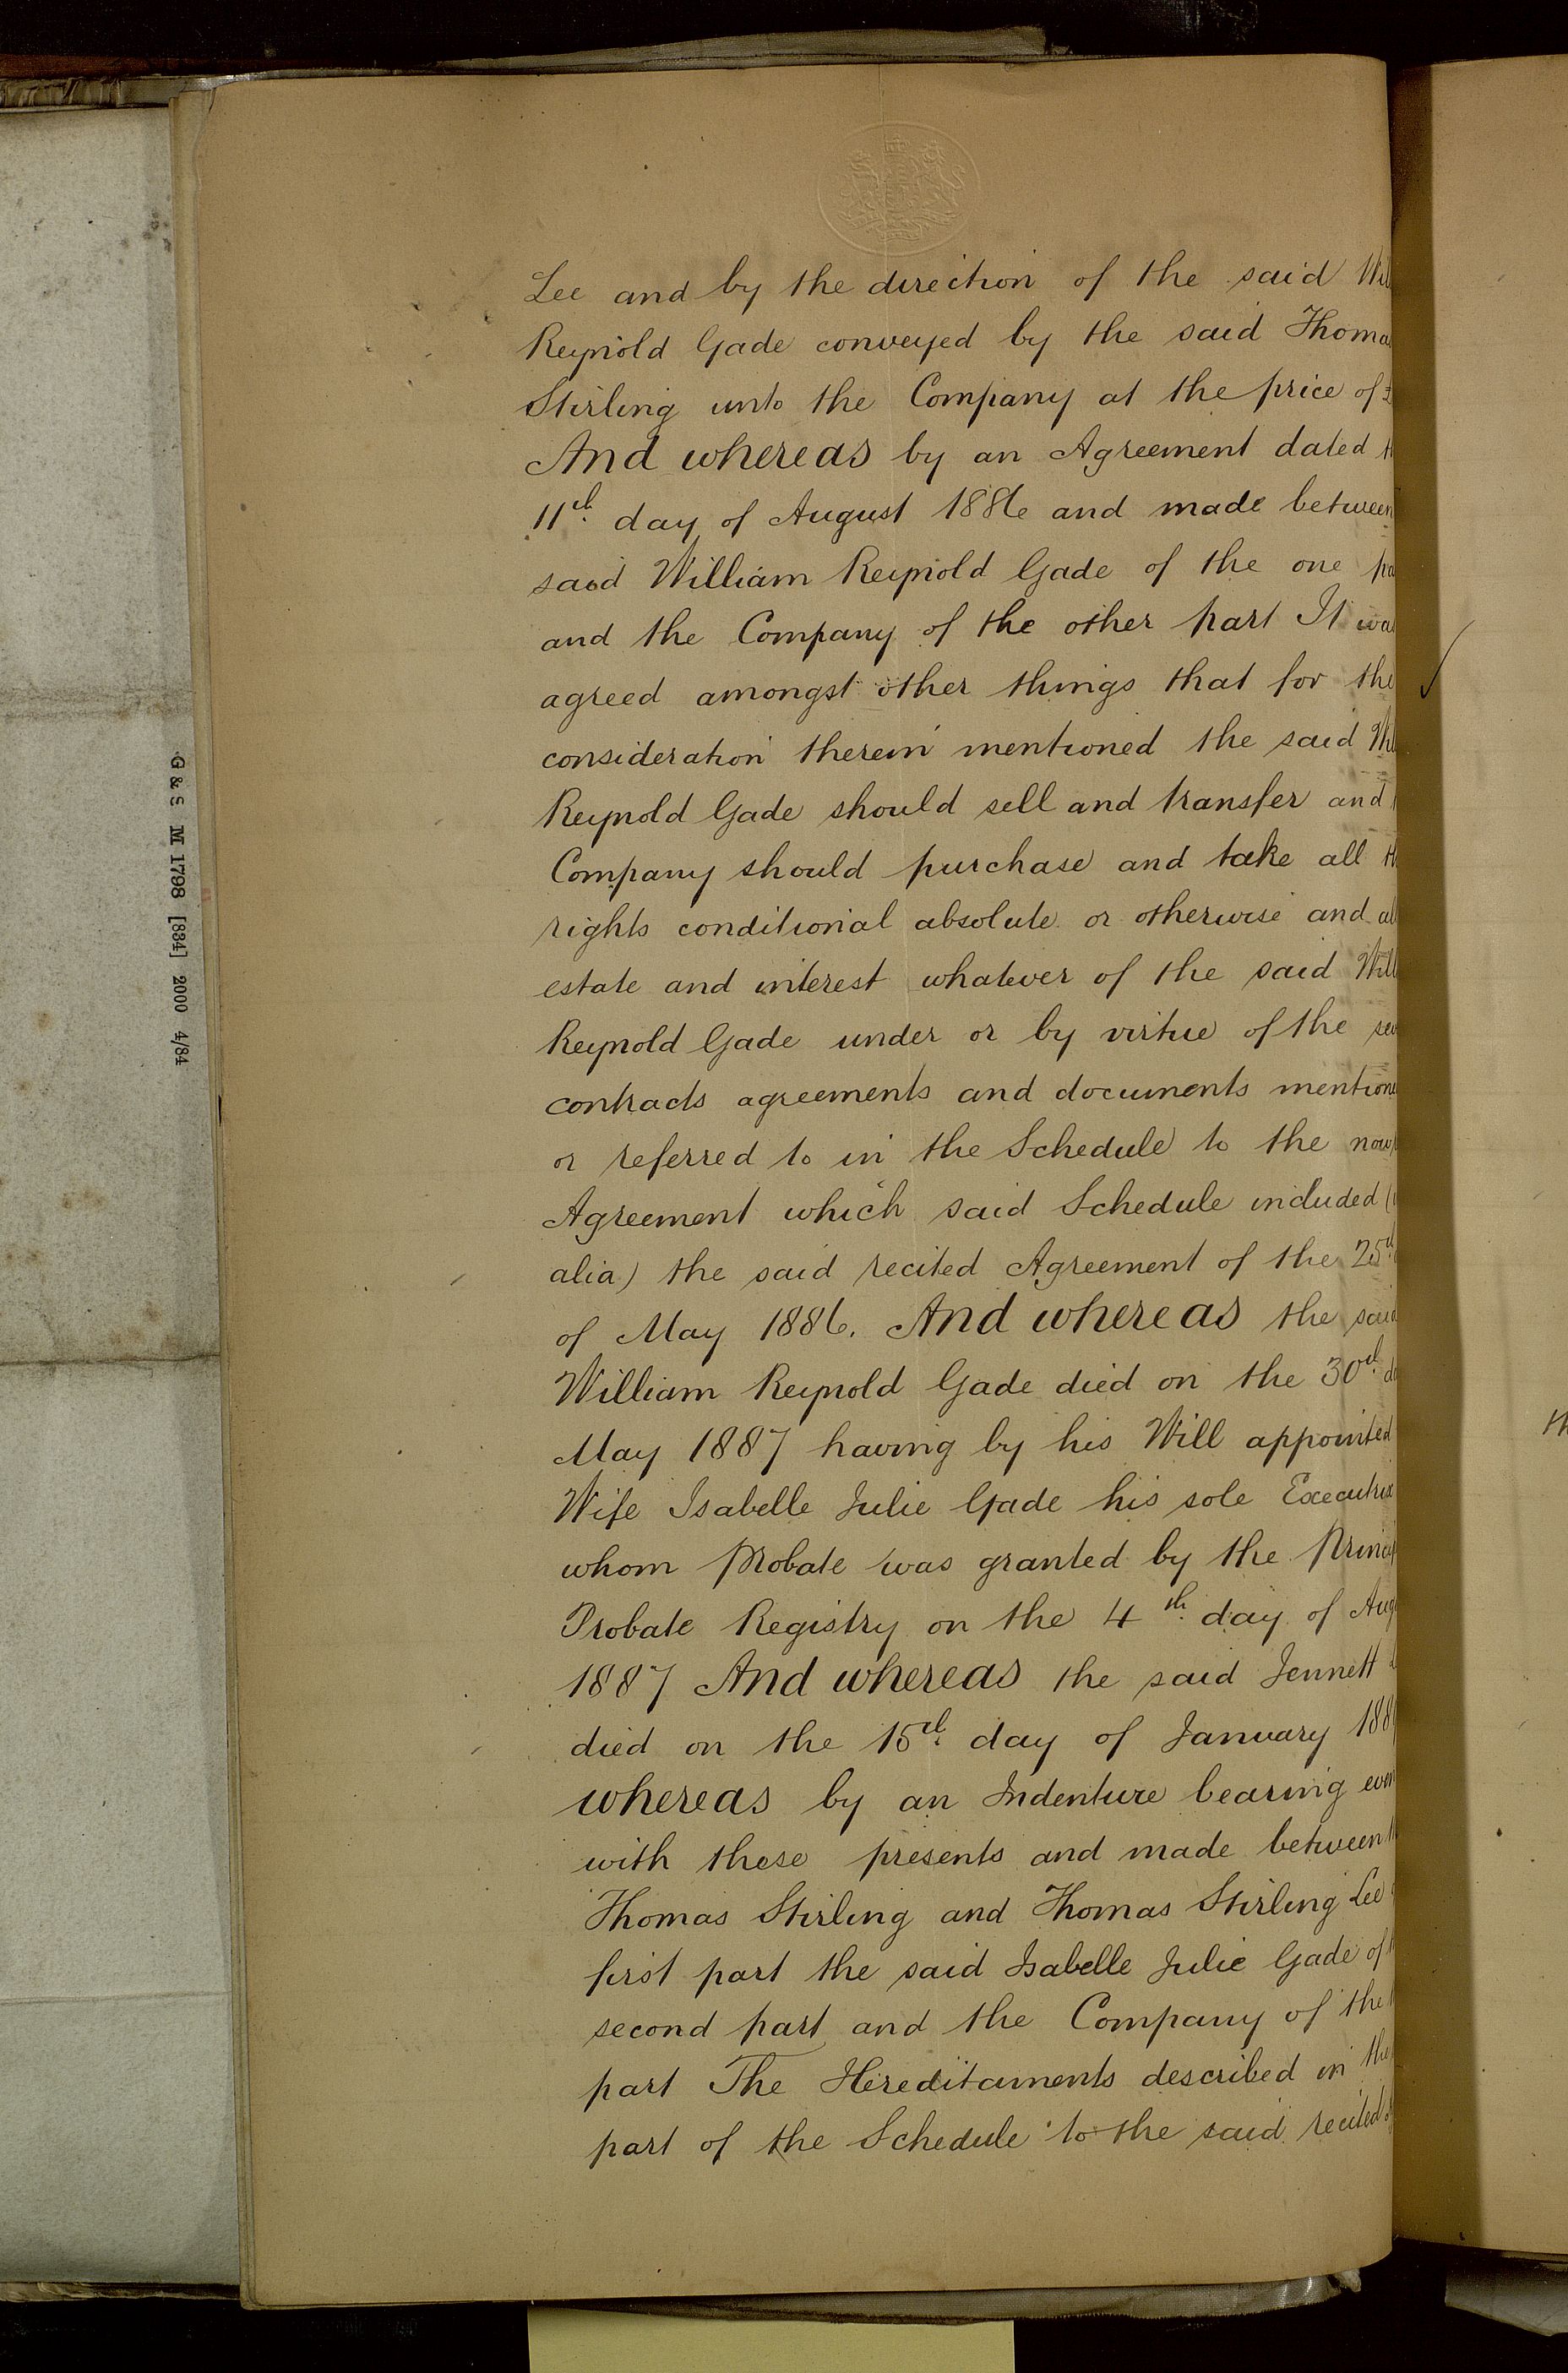 Lee and by the direction of the said Wil
Reynold Gade conveyed by the said Thomas
Stirling unto the Company at the price of £
And whereas by an Agreement dated th
11th day of August 1886 and made between
said William Reynold Gade of the one pa
and the Company of the other part It was
agreed amongst other things that for the
consideration therein mentioned the said Wil
Reynold Gade should sell and transfer and
Company should purchase and take all th
rights conditional absolute or otherwise and al
estate and interest whatever of the said Will
Reynold Gade under or by virtue of the sev
contracts agreements and documents mentione
or referred to in the Schedule to the now
Agreement which said Schedule included (
alia) the said recited Agreement of the 25th
of May 1886. And whereas the said
William Reynold Gade died on the 30th da
May 1887 having by his Will appointed
Wife Isabelle Julie Gade his sole Executrix
whom Probate was granted by the Princip
Probate Registry on the 4th day of Aug
1887 And whereas the said Jennett
died on the 15th day of January 188
whereas by an Indenture bearing even
with these presents and made between
Thomas Stirling and Thomas Stirling Lee
first part the said Isabelle Julie Gade of
second part and the Company of the
part The Hereditaments described in the
part of the Schedule to the said recited
G & S M 1798 [884] 2000 4/84
th